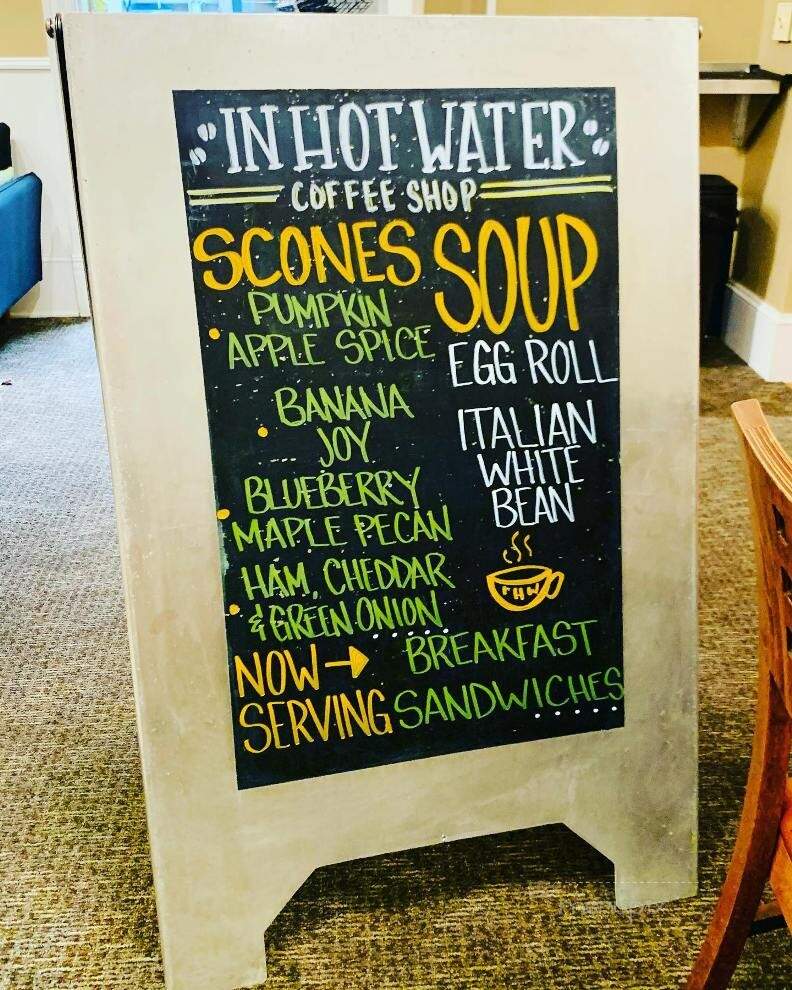 IN HOT WATER
COFFEE SHOP
SCONES
PUMPKIN
APPLE SPICE
BANANA
JOY
BLUEBERRY
MAPLE PECAN
HAM, CHEDDAR
& GREEN ONION
SOUP
EGG ROLL
ITALIAN
WHITE
BEAN
IHW
NOW → BREAKFAST
SERVING SANDWICHES